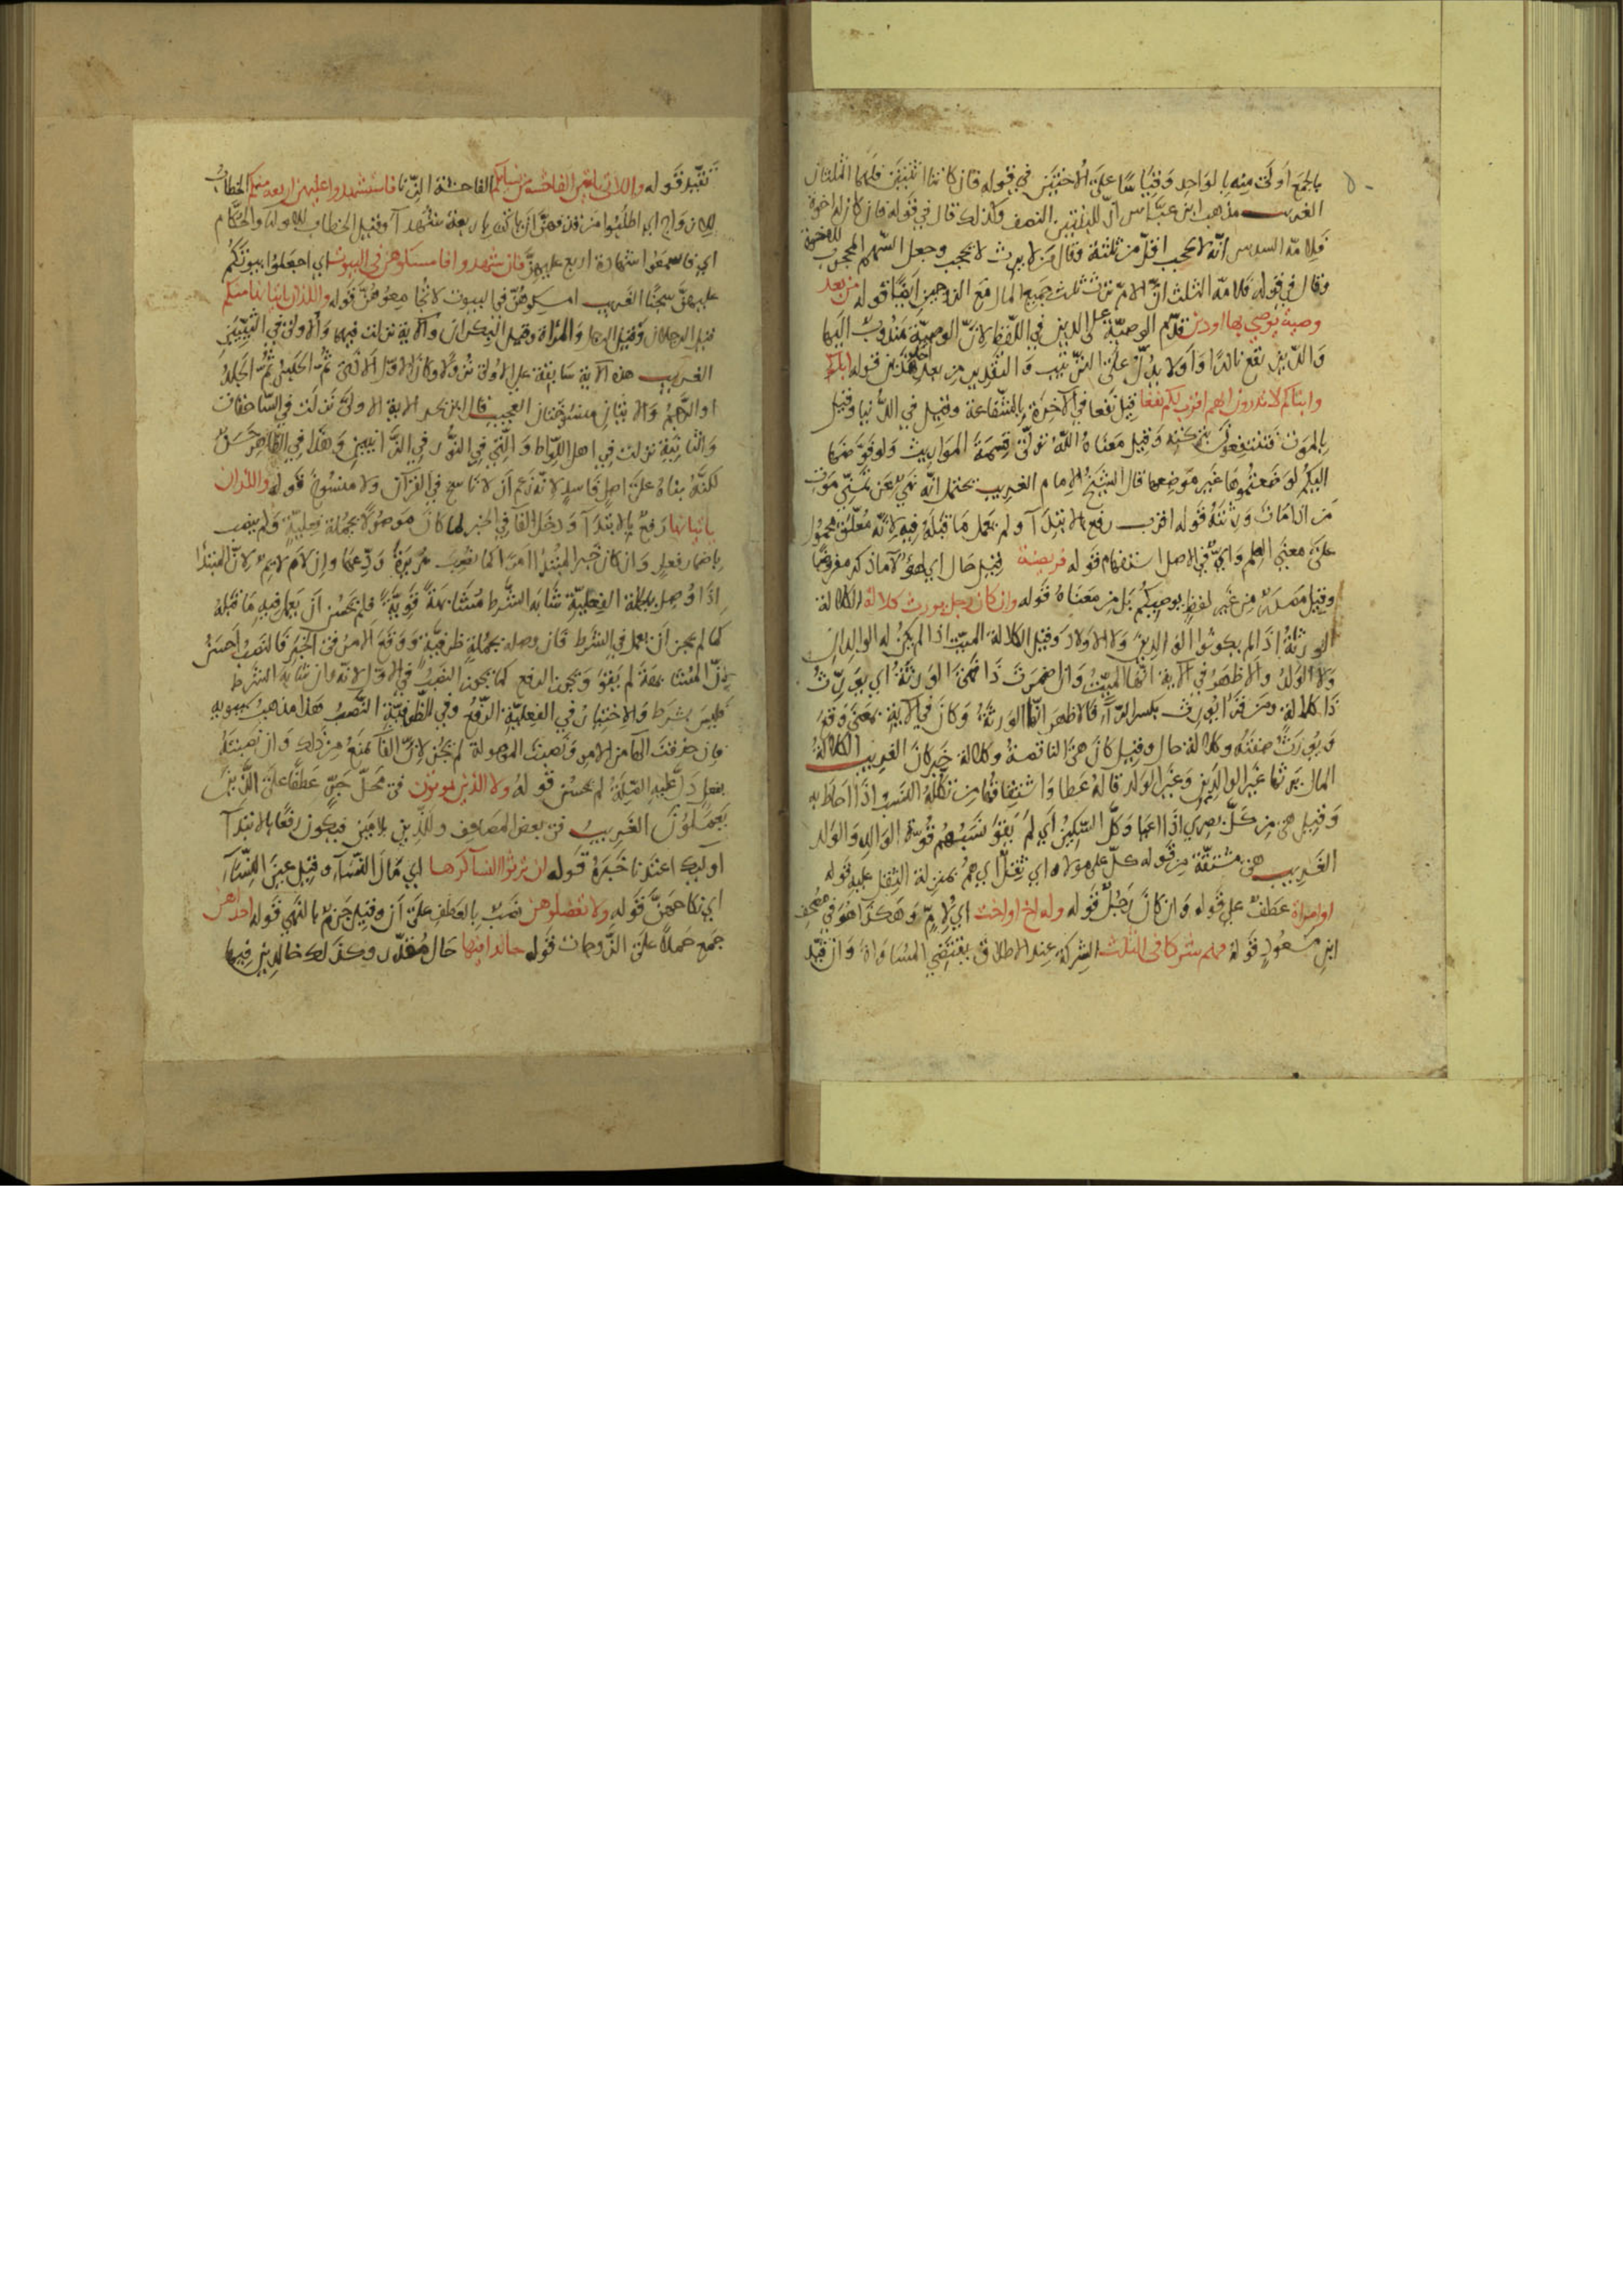 بالجمع اولى منه بالواحد وقياسًا على الاختين في قوله فان كانتا اثنتين فلهما الثلثان
الغريب مذهب ابن عباس ان للبنتين النصف وكذلك قال في قوله فان كان له اخوة
فلامه السدس انه لا يحجب اقل من ثلثة وقال من لا يرث لا يحجب وجعل السهم المحجوب للاخوة
وقال في قوله فلامه الثلث ان الام ترث ثلث جميع المال مع الزوجين ايضًا قوله من بعد
وصية يوصي بها اودين قدم الوصية على الدين في اللفظ لان الوصية مندوب اليها
والدين يقع نادرًا واو لا يدل على الترتيب والتقدير من بعد احد هذين قوله اباؤكم
وابناكم لا تدرون ايهم اقرب لكم نفعا قيل نفعا في الاخرة بالشفاعة وقيل في الدنيا وقيل
بالموت فتنتفعون بتركته وقيل معناه الله تولى قسمة المواريث ولو فوضها
اليكم لوضعتموها غير موضعها قال الشيخ الامام الغريب يحتمل انه نهي عن تمني موت
من اذا مات ورثته قوله اقرب رفع بالابتدآ ولم يعمل ما قبله فيه لانه معلق محمول
على معنى العلم واي في الاصل استفهام قوله فريضة قيل حال اي لهؤلآ ما ذكر مفروضًا
وقيل مصدر من غير لفظ يوصيكم بل من معناه قوله وان كان رجل يورث كلالة الكلالة
الورثة اذا لم يكونوا الوالدين ولا الاولاد وقيل الكلالة الميت اذا لم يكن له الوالدان
ولا الولد والاظهر في الآية انها الميت وان اضمرت ذا فهي الورثة اي يورث
ذا كلالة ومن قرأ يورث بكسر الرآء فالاظهر انها الورثة وكان في الآية بمعنى وقع
ويورث صفته وكلالة حال وقيل كان هي الناقصة وكلالة خبر كان الغريب الكلالة
المال يرثها غير الوالدين وغير الولد قاله عطا واشتقاقها من تكلله النسب اذا احاط به
وقيل هي من كل بصري اذا اعيا وكل السكين اي لم يقو نسبهم قوة الوالد والولد
الغريب هي مشتقة من قوله كل على مولاه اي ثقل اي هم بمنزلة الثقل عليه قوله
او امراة عطف على قوله وان كان رجل قوله وله اخ او اخت اي لام وهكذا هو في مصحف
ابن مسعود قوله فهم شركا في الثلث الشركة عند الاطلاق يقتضي المساواة وان قيد
تقيد قوله واللاتي ياتين الفاحشة من نسايكم الفاحشة الزنا فاستشهدوا عليهن اربعة منكم الخطاب
للازواج اي اطلبوا من قذفهن ان ياتي باربعة شهدآ وقيل الخطاب للولاة والحكام
اي فاسمعوا شهادة اربع عليهن فان شهدوا فامسكوهن في البيوت اي اجعلوا بيوتكم
عليهن سجنًا الغريب امسكوهن في البيوت لا تجامعوهن قوله واللذان ياتيانها منكم
قيل الرجلان وقيل الرجل والمراة وقيل البكران والآية نزلت فيهما والاولى في الثيبين
الغريب هذه الآية سابقة على الاولى نزولا وكان الاول الاذى ثم الحبس ثم الجلد
او الرجم والآيتان منسوختان العجيب قال ابن بحر الآية الاولى نزلت في السحاقات
والثانية نزلت في اهل اللواط والتي في النور في الزانيين وهذا في الظاهر حسن
لكنه بناه على اصل فاسد لانه زعم ان لا ناسخ في القرآن ولا منسوخ قوله واللذان
ياتيانها رفع بالابتدآ ودخل الفا في الخبر لما كان موصولا بجملة فعلية ولم ينصب
باضمار فعل وان كان خبر المبتدا امرا كما تقول زيدا ودعها وان لام لايم لان المبتدا
اذا وصل بالجملة الفعلية شابه الشرط مشابهة قوية فلم يحسن ان يعمل فيه ما قبله
كما لم يجز ان يعمل في الشرط فان وصله بجملة ظرفية ووقع الامر في الخبر فالنصب احسن
لان المشابهة لم يقو ويجوز الرفع كما يجوز النصب في الاول لانه وان شابه الشرط
فليس بشرط والاختيار في الفعلية الرفع وفي الظرفية النصب هذا مذهب سيبويه
فان حذفت الفا من الامر ونصبت الموصولة لم يجز لان الفا يمنع من ذلك وان نصبته
بفعل دل عليه الصلة لم يحسن قوله ولا الذين يموتون في محل جر عطفا على الذين
يعملون الغريب في بعض المصاحف وللذين بلامين فيكون رفعًا بالابتدآ
اوليك اعتدنا خبره قوله ان ترثوا النسآ كرها اي مال النسآء وقيل عين النسآء
اي نكاحهن قوله ولا تعضلوهن نصب بالعطف على ان وقيل جزم بالنهي قوله احداهن
جمع حملا على الزوجات قوله خالدا فيها حال مقدر وكذلك خالدين فيها